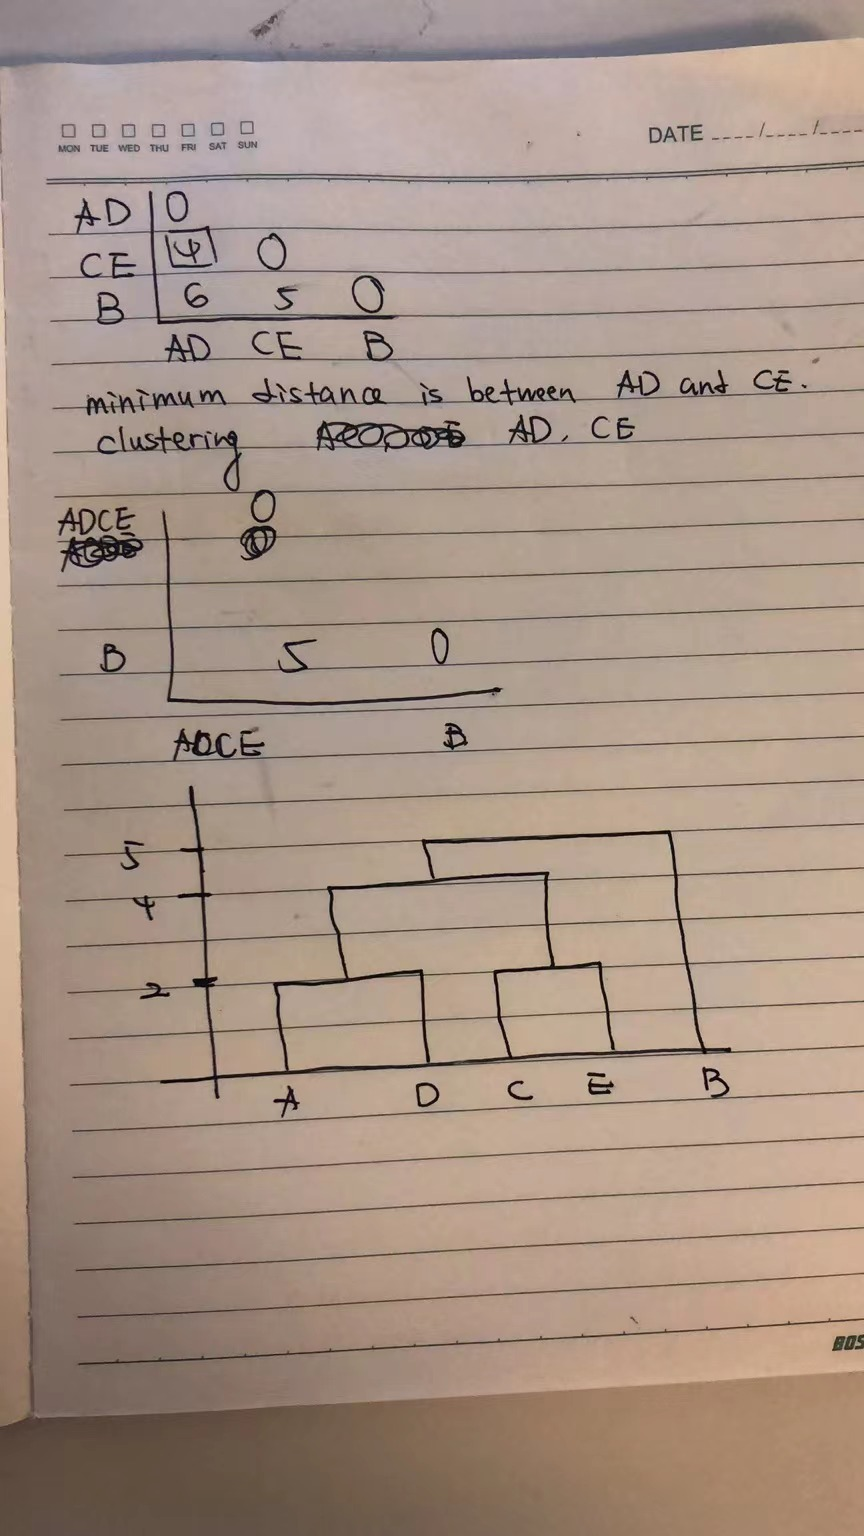 MON TUE WED THU FRI SAT SUN
DATE ____/____/____
AD 0
CE 4 0
B 6 5 0
AD CE B
minimum distance is between AD and CE.
clustering AD, CE
ADCE 0
B 5 0
ADCE B
5
4
2
A D C E B